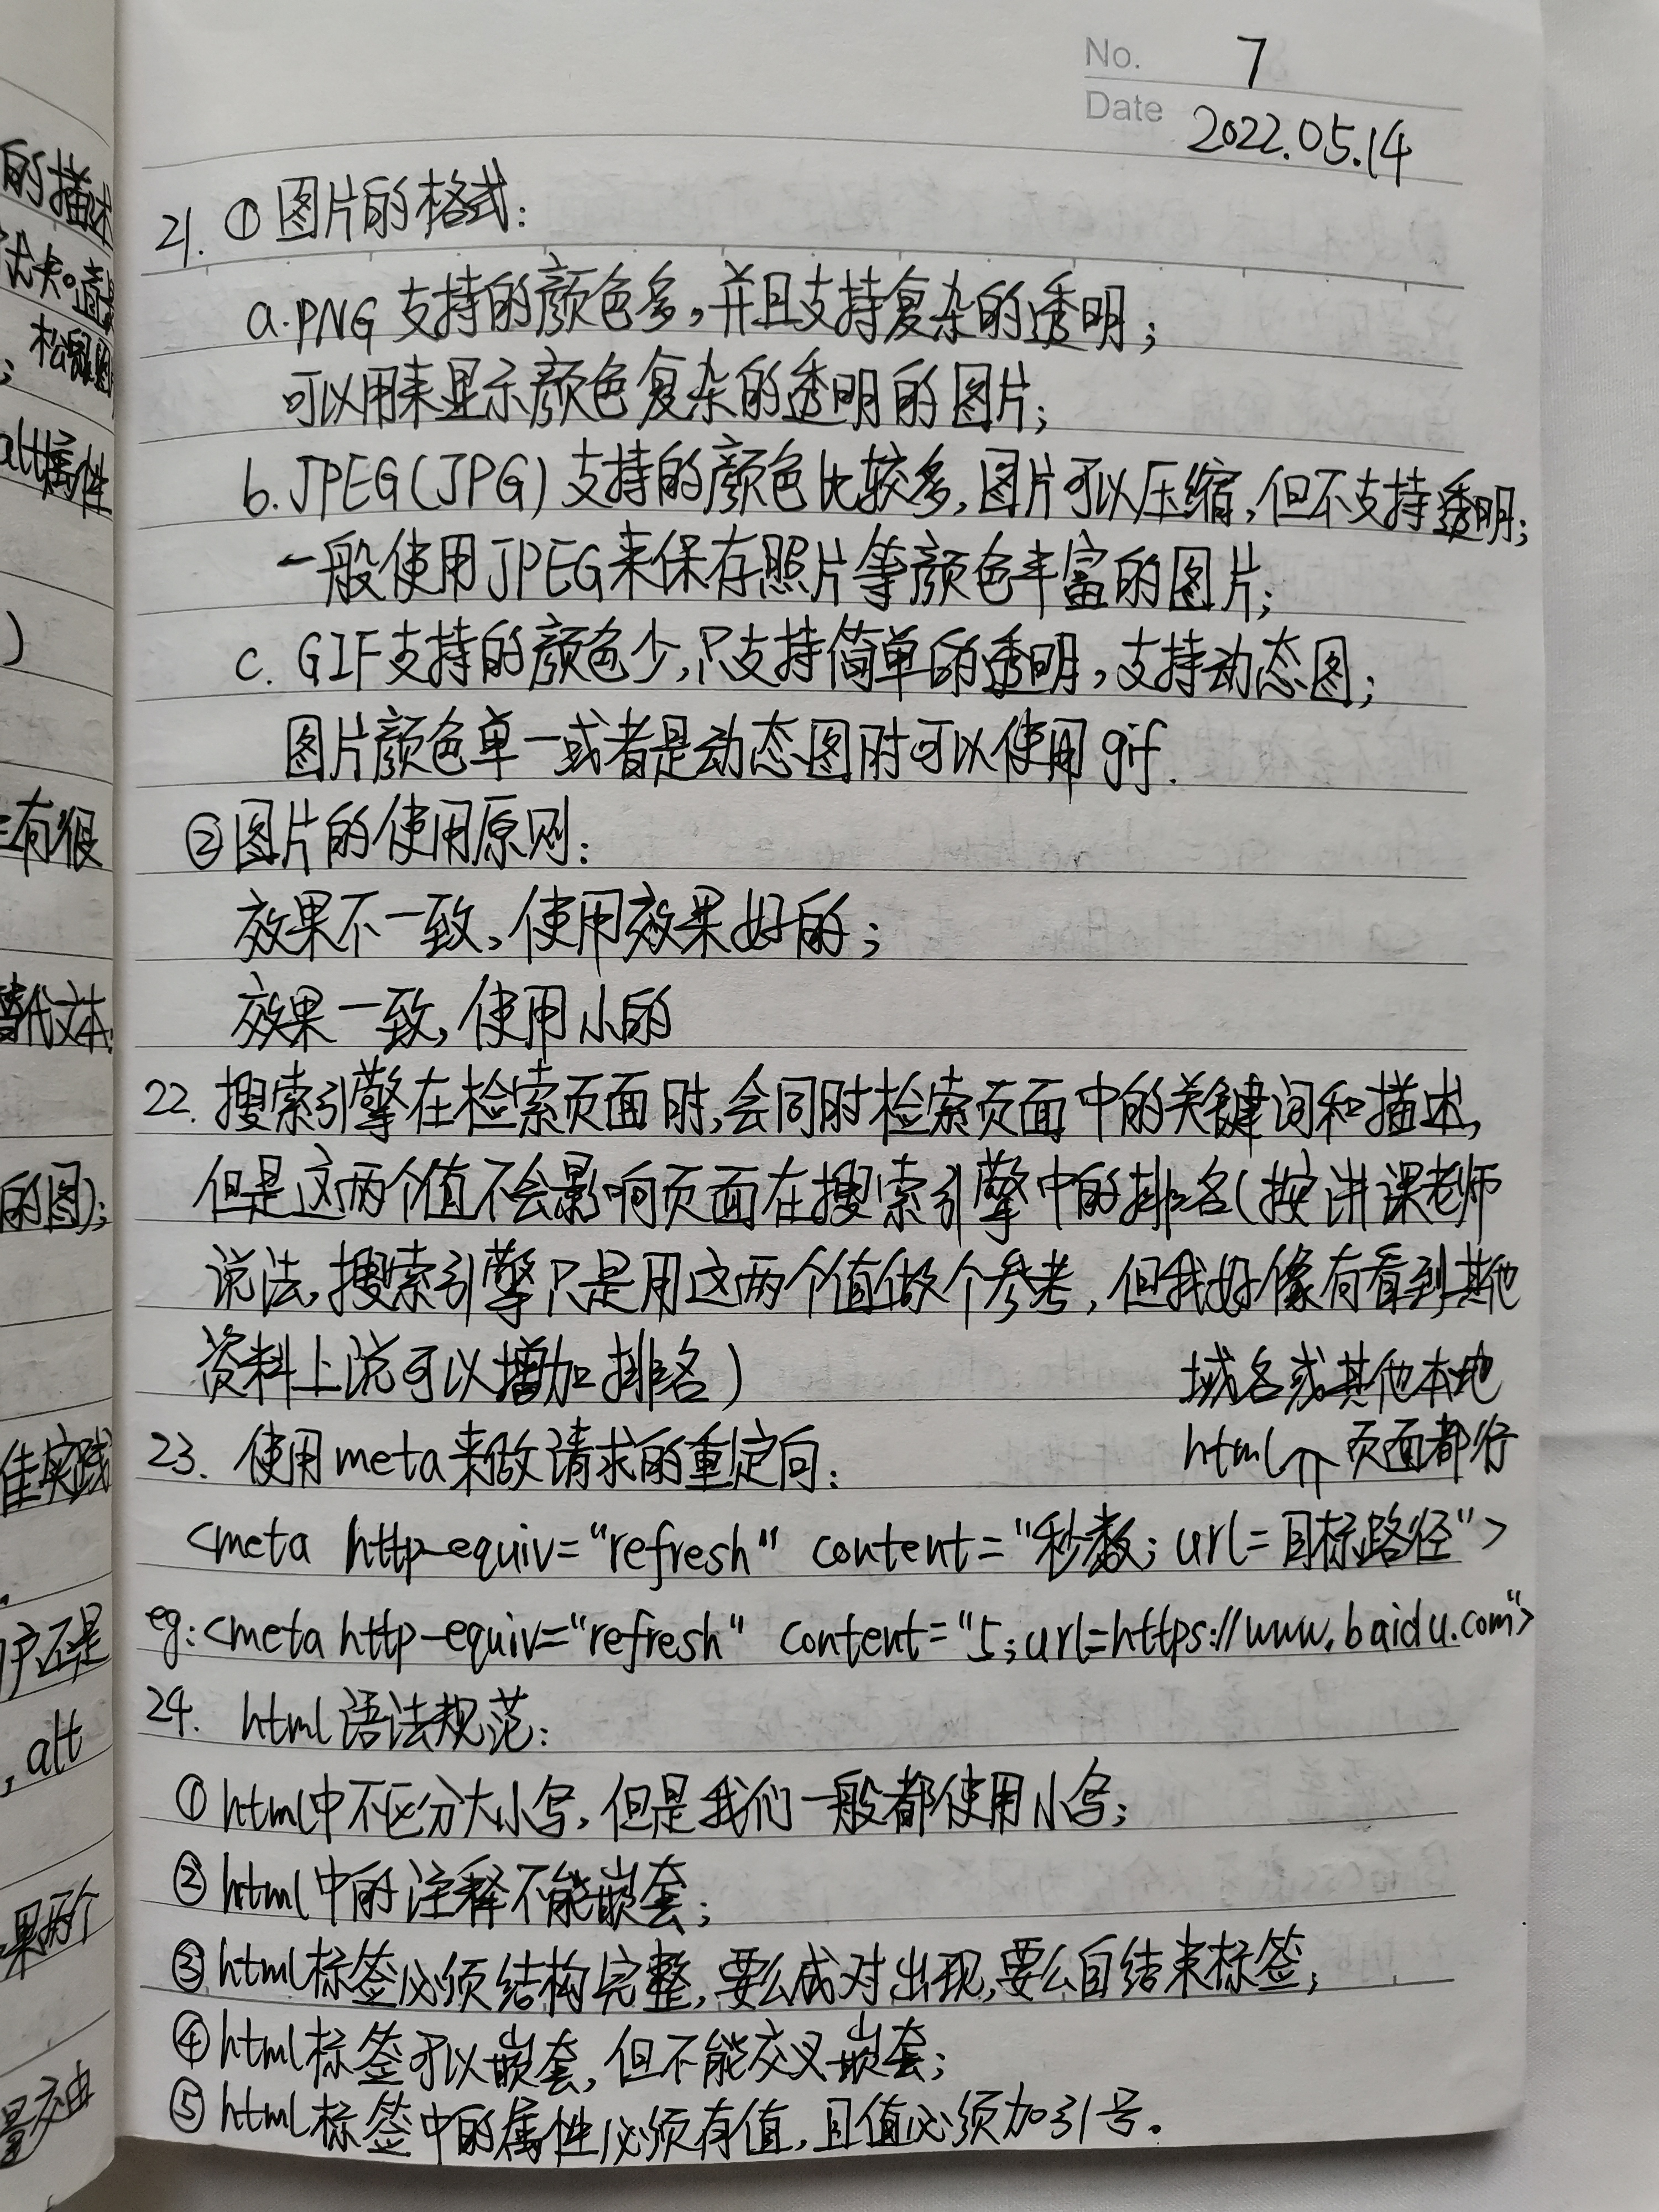 No. 7
Date 2022.05.14
21. ①图片的格式:
a.PNG 支持的颜色多,并且支持复杂的透明;
可以用来显示颜色复杂的透明的图片;
b.JPEG(JPG)支持的颜色比较多,图片可以压缩,但不支持透明;
一般使用JPEG来保存照片等颜色丰富的图片;
c. GIF支持的颜色少,只支持简单的透明,支持动态图;
图片颜色单一或者是动态图时可以使用gif.
②图片的使用原则:
效果不一致,使用效果好的;
效果一致,使用小的
22. 搜索引擎在检索页面时,会同时检索页面中的关键词和描述,
但是这两个值不会影响页面在搜索引擎中的排名(按讲课老师
说法,搜索引擎只是用这两个值做个参考,但我好像有看到其他
资料上说可以增加排名)
域名或其他本地
html页面都行
23. 使用meta来做请求的重定向:
<meta http-equiv="refresh" content="秒数; url=目标路径">
eg:<meta http-equiv="refresh" content="5;url=https://www.baidu.com">
24. html语法规范:
①html中不区分大小写,但是我们一般都使用小写;
②html中的注释不能嵌套;
③html标签必须结构完整,要么成对出现,要么自结束标签;
④html标签可以嵌套,但不能交叉嵌套;
⑤html标签中的属性必须有值,且值必须加引号。
的描述
alt属性
)
有很
替代文本
的图);
佳实践
户还是
, alt
果两个